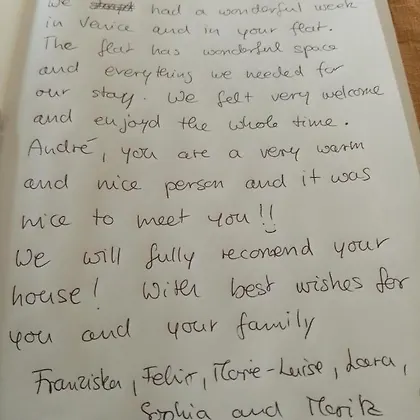 We had a wonderful week
in Venice and in your flat.
The flat has wonderful space
and everything we needed for
our stay. We felt very welcome
and enjoyd the whole time.
André, you are a very warm
and nice person and it was
nice to meet you!!
We will fully recomend your
house! With best wishes for
you and your family
Franziska, Felix, Marie-Luise, Lara,
Sophia and Marik